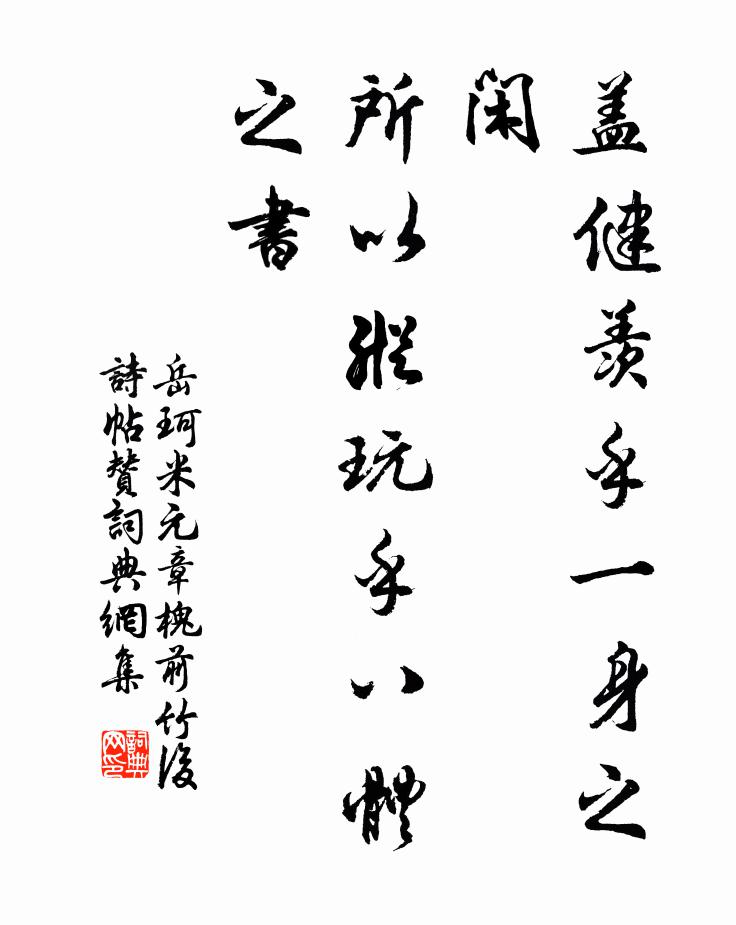 盖健羡乎一身之
闲
所以縱玩乎八體
之書
岳珂米元章槐前竹後
詩帖贊詞典網集
詞典
网印